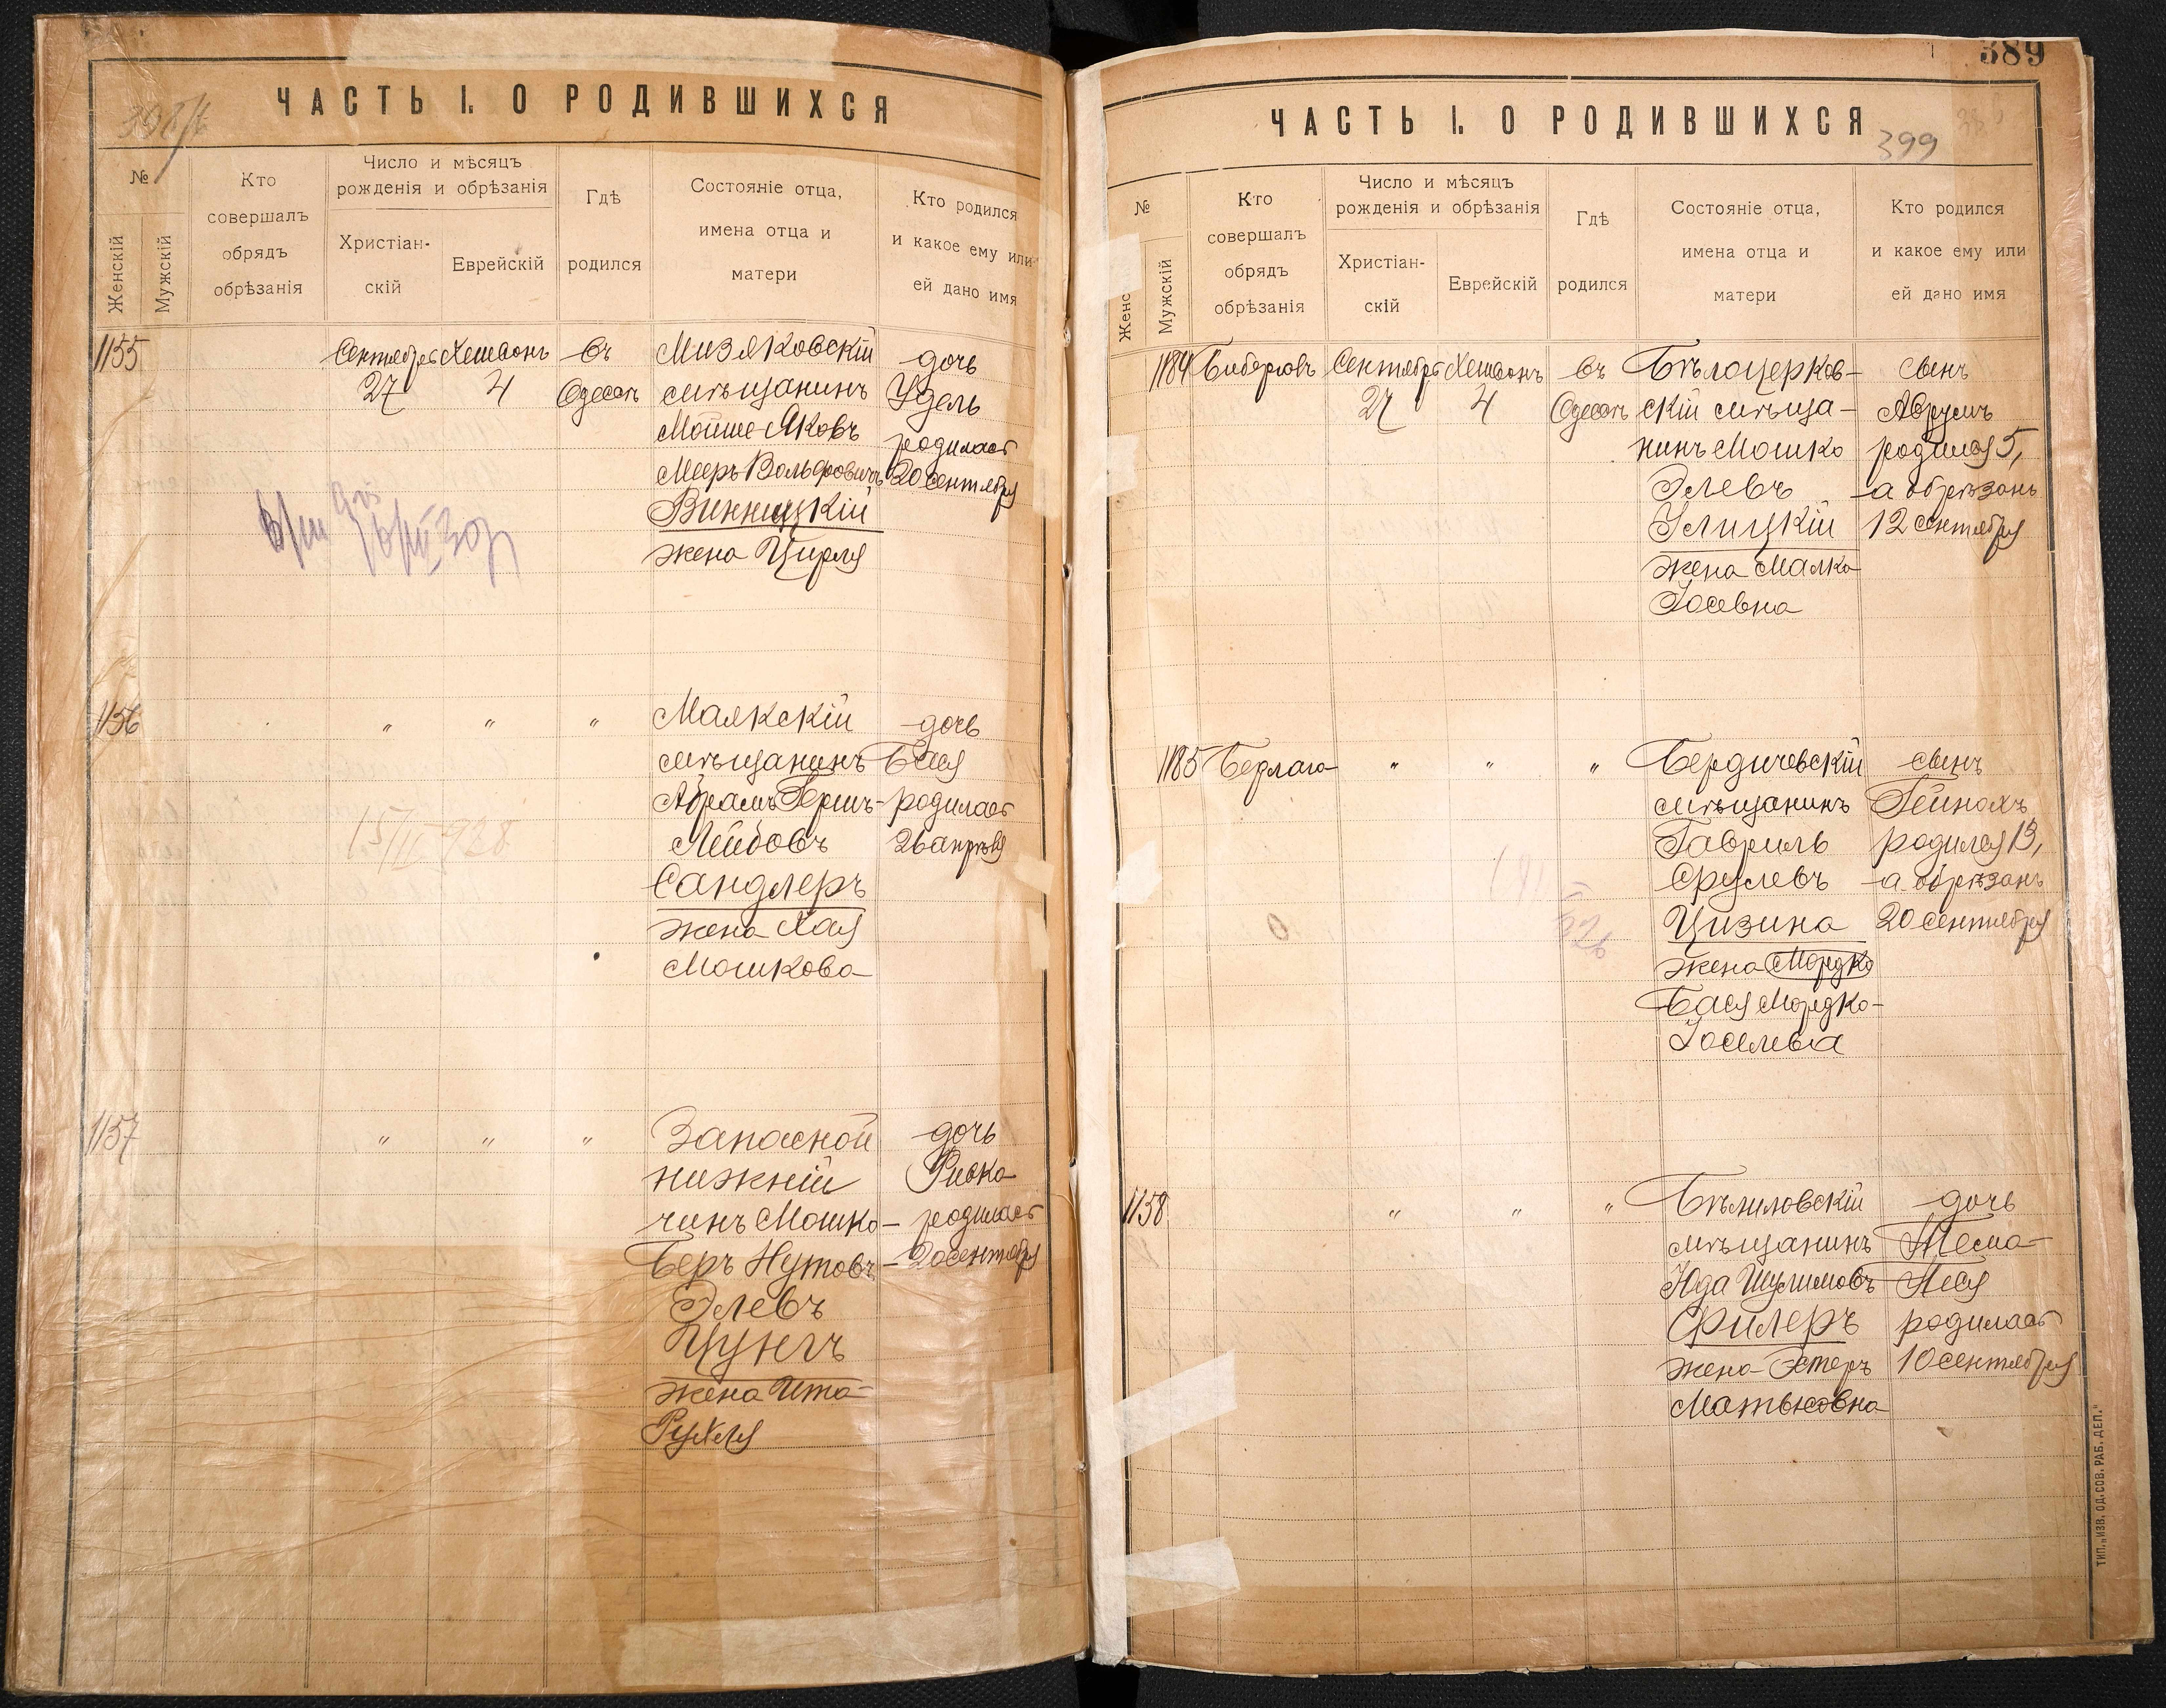 ЧАСТЬ I. О РОДИВШИХСЯ
№
Женскій
Мужскій
Кто
совершалъ
обрядъ
обрѣзанія
Число и мѣсяцъ
рожденія и обрѣзанія
Христіан-
скій
Еврейскій
Гдѣ
родился
Состояніе отца,
имена отца и
матери
Кто родился
и какое ему или
ей дано имя
1155
Сентября
27
Хешвонъ
4
въ
Одессѣ
Мизяковскій
мѣщанинъ
Мойше-Яковъ
Мееръ Вольфовичъ
Винницкій
жена Цирля
дочь
Удель
родилась
20 сентября
1156
"
"
"
Маякскій
мѣщанинъ
Абрамъ Гершъ-
Лейбовъ
Сандлеръ
жена Хая
Мошкова
дочь
Бася
родилась
26 апрѣля
15/II 928
1157
"
"
"
Запасной
нижній
чинъ Мошко-
Беръ Нутовъ-
Элевъ
Цунгъ
жена Ита-
Рухля
дочь
Ривка
родилась
20 сентября
389
ЧАСТЬ I. О РОДИВШИХСЯ
399
№
Женс
Мужскій
Кто
совершалъ
обрядъ
обрѣзанія
Число и мѣсяцъ
рожденія и обрѣзанія
Христіан-
скій
Еврейскій
Гдѣ
родился
Состояніе отца,
имена отца и
матери
Кто родился
и какое ему или
ей дано имя
1184
Сентября
27
Хешвонъ
4
въ
Одессѣ
Бѣлоцерков-
скій мѣща-
нинъ Мошко
Элевъ
Улицкій
жена Малка
Іосевна
сынъ
Аврумъ
родился 5,
а обрѣзанъ
12 сентября
1185
"
"
"
Бердичевскій
мѣщанинъ
Гавриль
Срулевъ
Цизина
жена Мордко
Бася Мордко-
Іоселева
сынъ
Гейнохъ
родился 13,
а обрѣзанъ
20 сентября
1158
"
"
"
Бѣлиловскій
мѣщанинъ
Юда Шулимовъ
Филеръ
жена Эстеръ
Матысовна
дочь
Тема-
Песя
родилась
10 сентября
ТИП. „ИЗВ. ОД. СОВ. РАБ. ДЕП."